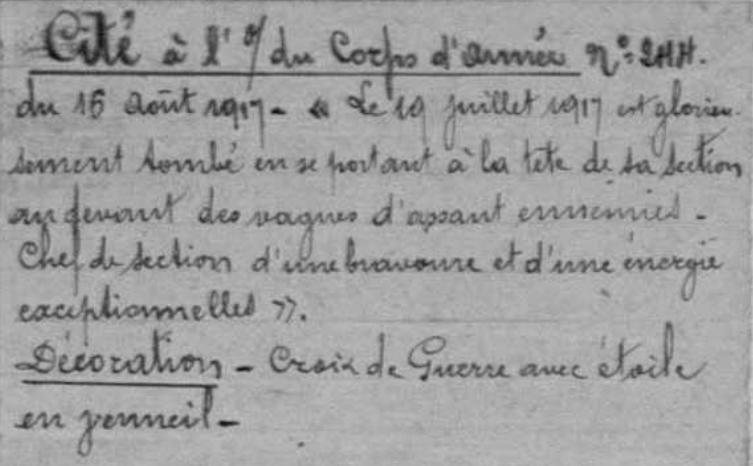 Cité à l'o/ du Corps d'armée N°: 244.
du 16 Août 1917 - « Le 19 juillet 1917 est glorieu-
sement tombé en se portant à la tete de sa section
au devant des vagues d'assaut ennemies -
Chef de section d'une bravoure et d'une énergie
exceptionnelles ».
Décoration - Croix de Guerre avec étoile
en vermeil -